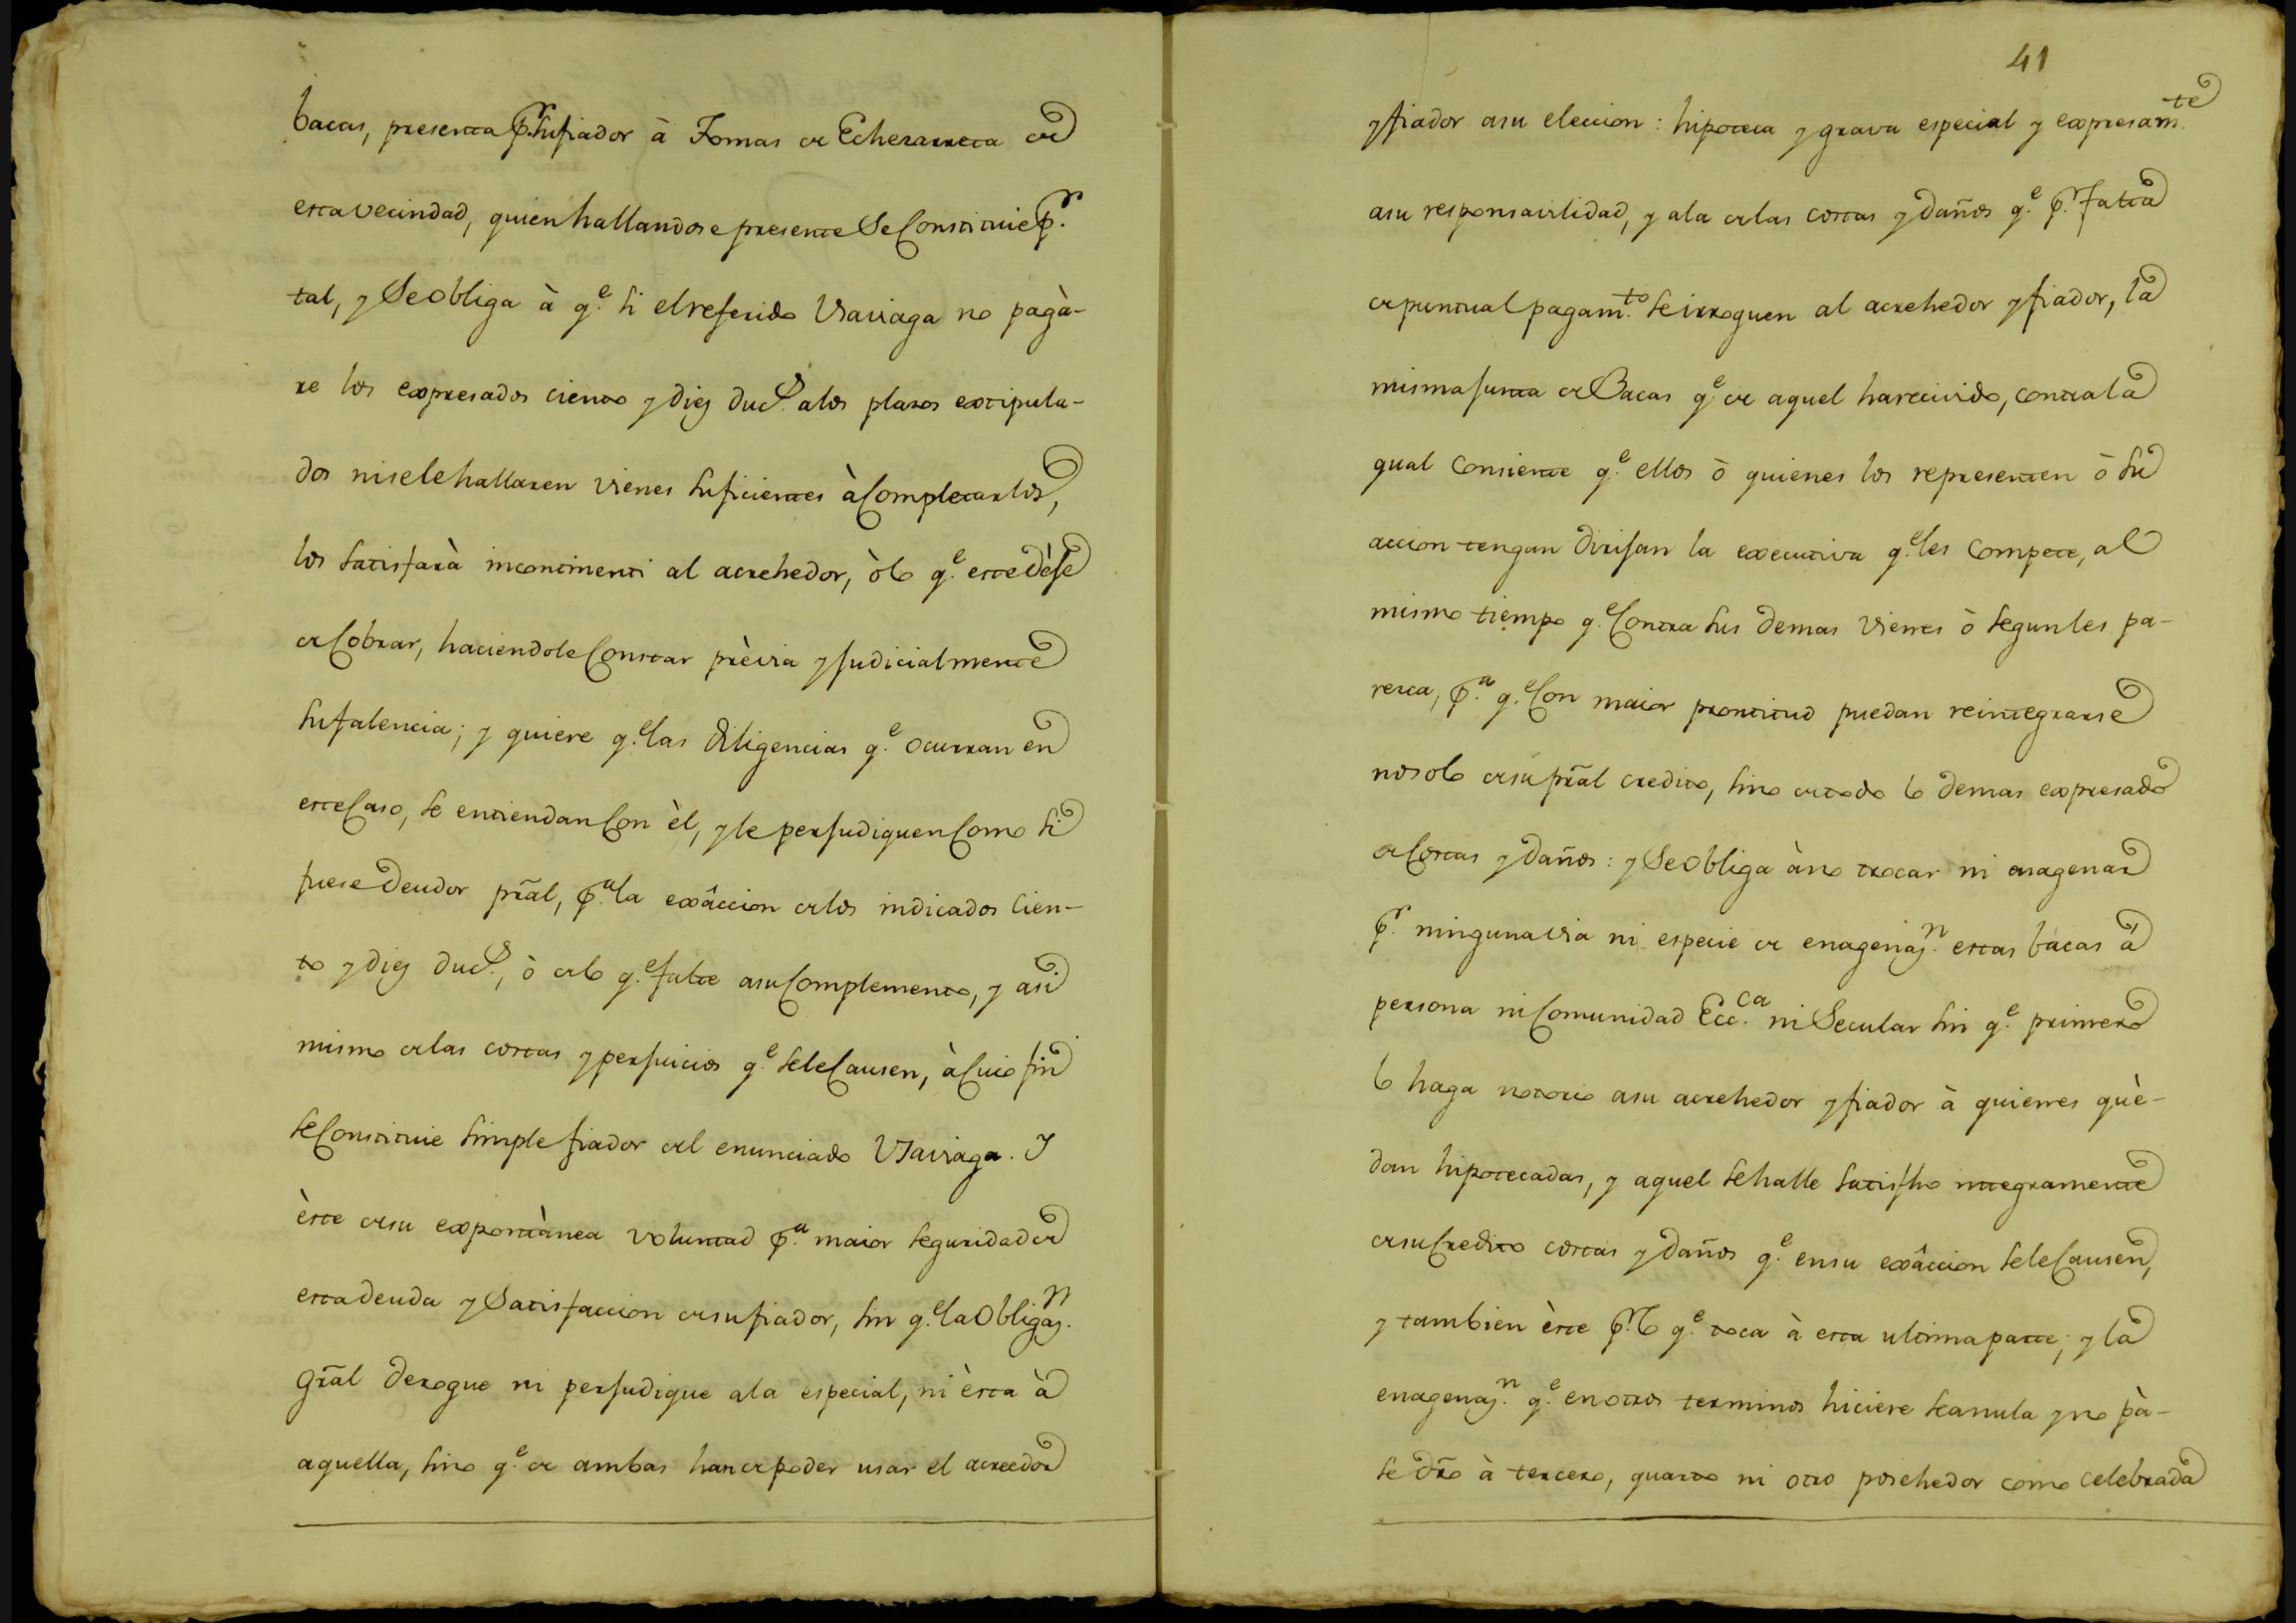 bacas, presenta p.r su fiador à Tomas de Echezarreta de
esta vecindad, quien hallandose presente se constituie p.r
tal, y se obliga à q.e si el referido Vsaviaga no pagà-
re los expresados ciento y diez duc.s a los plazos extipula-
dos ni se le hallaren vienes suficientes à completarlos,
los satisfarà incontinenti al acrehedor, ò lo q.e este dèse
de cobrar, haciendole constar prèvia y judicialmente
su falencia; y quiere q.e las diligencias q.e ocurran en
este caso, se entiendan con èl, y le perjudiquen como si
fuese deudor pral, p.a la exâccion de los indicados cien-
to y diez duc.s, ò de lo q.e falte a su complemento, y asi
mismo de las costas y perjuicios q.e se le causen, à cuio fin
se constituie simple fiador del enunciado Vsaviaga. Y
èste de su expontànea voluntad p.a maior seguridad de
esta deuda y satisfaccion de su fiador, sin q.e la obligaz.n
gral derogue ni perjudique a la especial, ni èsta à
aquella, sino q.e de ambas han de poder usar el acreedor
41
y fiador a su eleccion: hipoteca y grava especial y expresam.te
a su responsavilidad, y a la de las costas y daños q.e p.r falta
de puntual pagam.to se irroguen al acrehedor y fiador, la
misma junta de Bacas q.e de aquel ha recivido, contra la
qual consiente q.e ellos ò quienes los representen ò su
accion tengan dirijan la executiva q.e les compete, al
mismo tiempo q.e contra sus demas vienes ò segun les pa-
rezca, p.a q.e con maior prontitud puedan reintegrarse
no solo de su pral credito, sino de todo lo demas expresado
de costas y daños: y se obliga à no trocar ni enagenar
p.r ninguna via ni especie de enagenaz.n estas bacas à
persona ni comunidad Ecc.ca ni Secular sin q.e primero
lo haga notorio a su acrehedor y fiador à quienes què-
dan hipotecadas, y aquel se halle satisfho integramente
de su credito costas y daños q.e en su exâccion se le causen,
y tambien èste p.r lo q.e toca à esta ultima parte; y la
enagenaz.n q.e en otros terminos hiciere sea nula y no pà-
se dro à tercero, quarto ni otro posehedor como celebrada